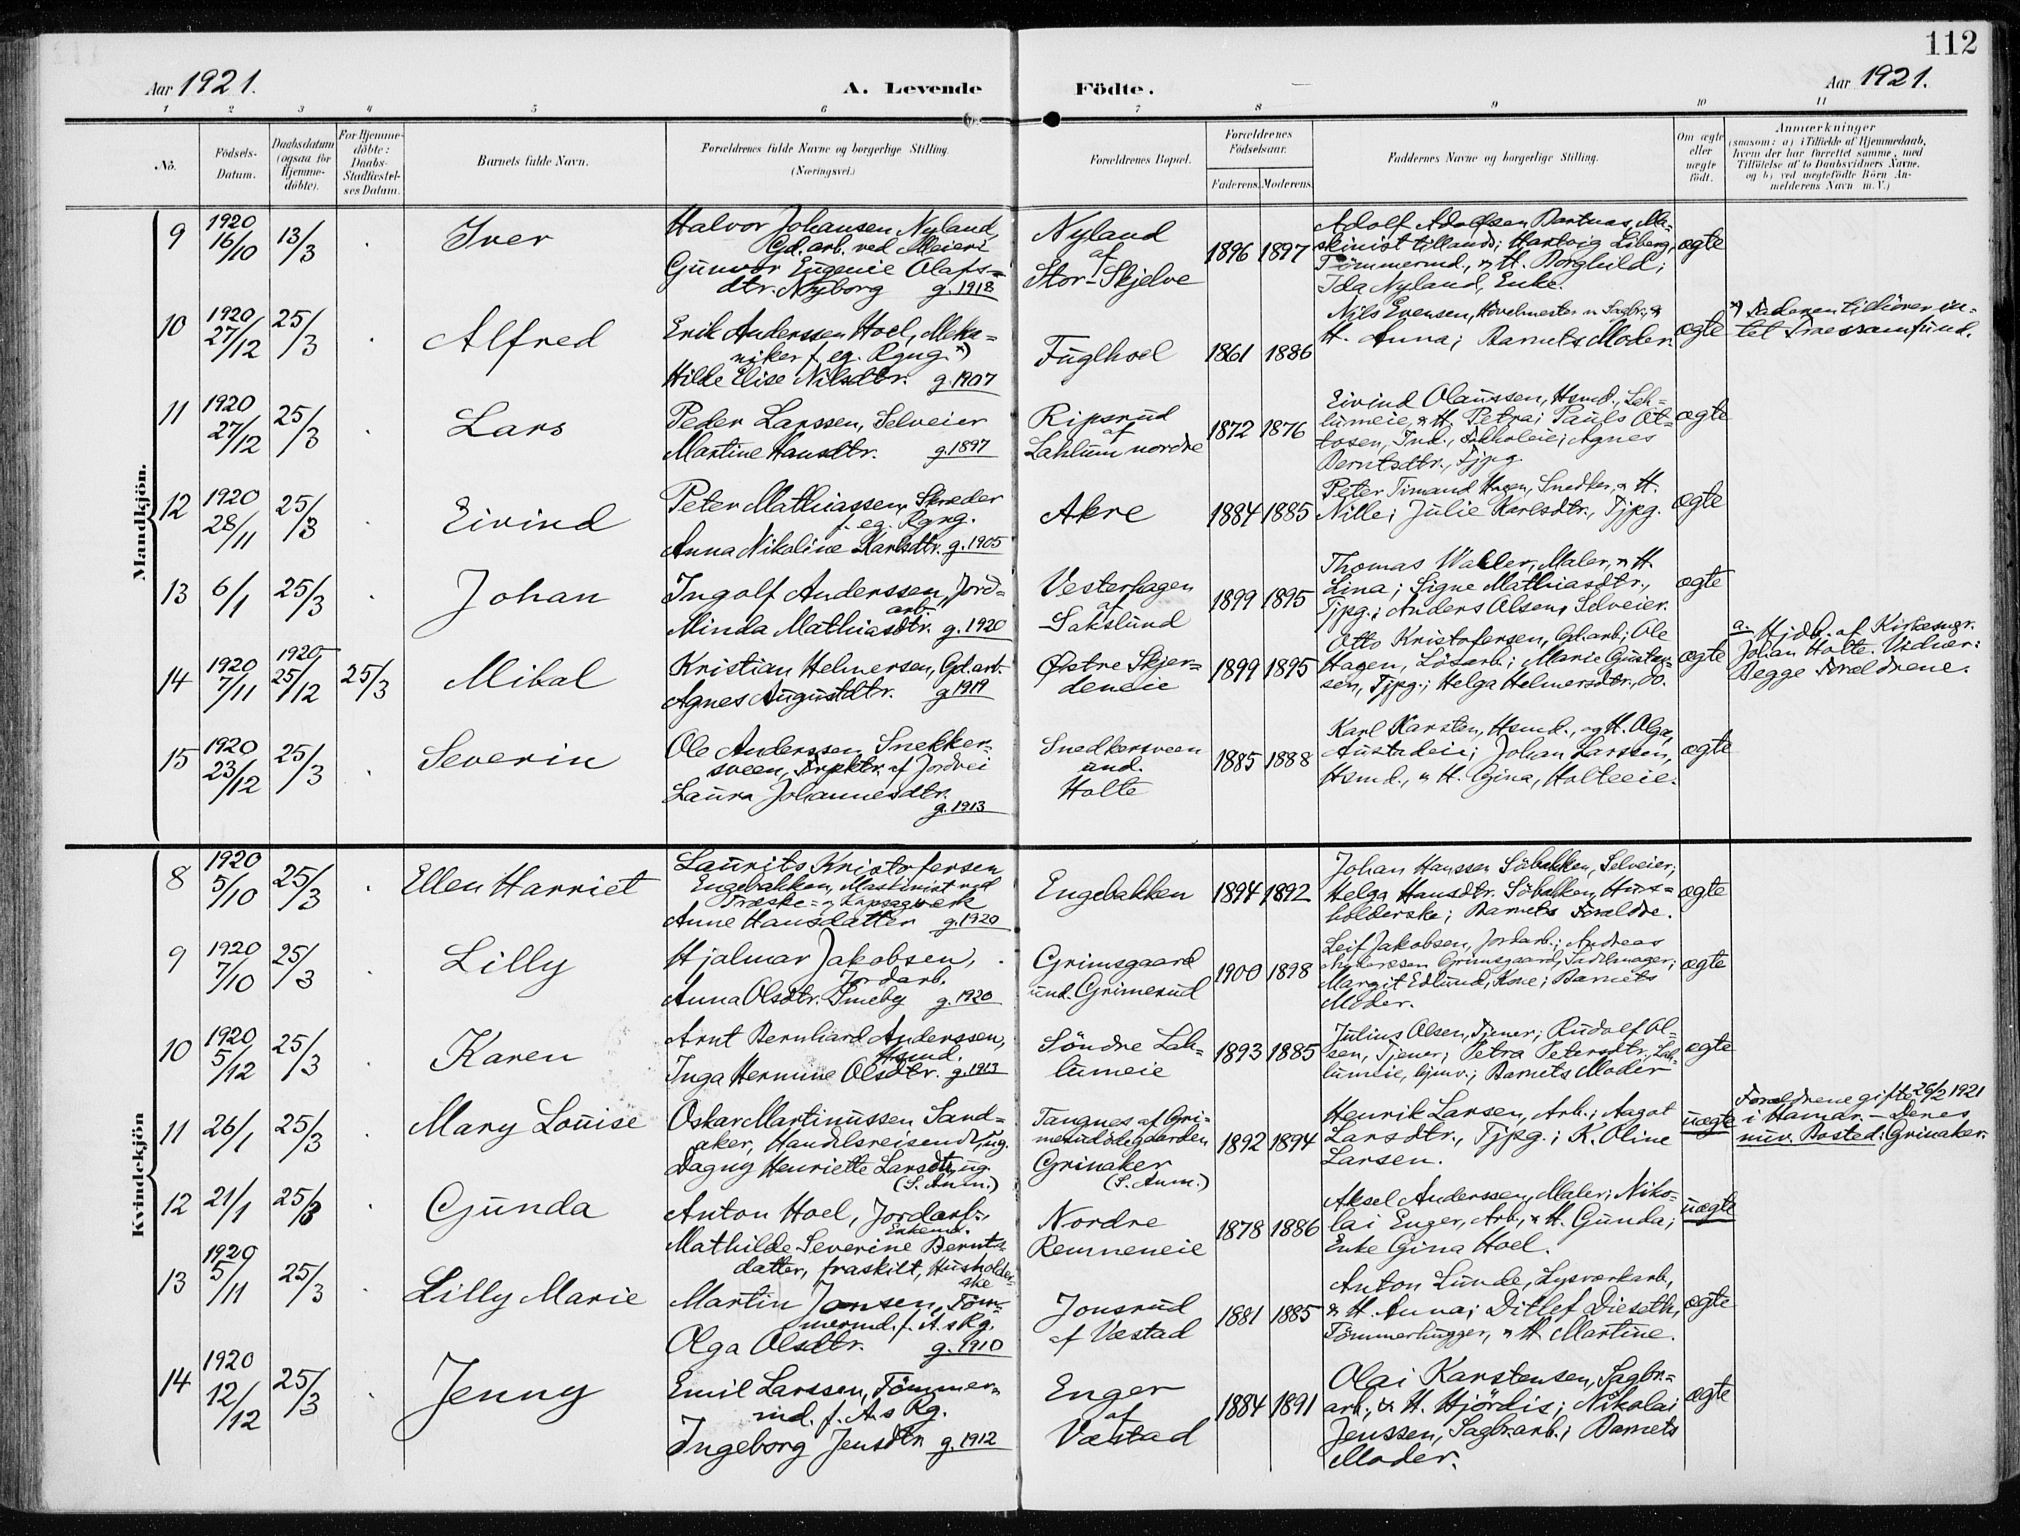 112
Aar 1921.
A. Levende Födte.
Aar 1921.
1 2 3 4 5 6 7 8 9 10 11
No.
Födsels-
Datum.
Daabsdatum
(ogsaa for
Hjemme-
döbte).
For Hjemme-
döbte:
Daabs-
Stadfæstel-
ses Datum.
Barnets fulde Navn.
Forældrenes fulde Navne og borgerlige Stilling.
(Næringsvei.)
Forældrenes Bopæl.
Forældrenes
Födselsaar.
Faderens. Moderens.
Faddernes Navne og borgerlige Stilling.
Om ægte
eller
uægte
födt.
Anmærkninger
(saasom: a) i Tilfælde af Hjemmedaab,
hvem der har forrettet samme, med
Tilföielse af to Daabsvidners Navne,
og b) ved uægtefödte Börn An-
melderens Navn m. V.)
Mandkjön.
9
1920
16/10
13/3
Iver
Halvor Johansen Nyland,
Gd.arb. ved Meieri
Gunvor Eugenie Olafs-
dtr. Nyborg g. 1918
Nyland
af
Stor-Skjelve
1896 1897
Adolf Adolfsen Bartnas, Ma-
skinist tillands; Hartvig Liberg,
Tömmermd., & H. Borghild;
Ida Nyland, Enke.
ægte
10
1920
27/12
25/3
Alfred
Erik Anderssen Hoel, Meka-
niker f. eg. Rgng. *)
Hilde Elise Nilsdtr. g. 1907
Fuglhoel
1861 1886
Nils Evensen, Hövelmester v Sagbr., &
H. Anna; Barnets Moder.
ægte
*) Faderen tilhörer in-
tet Troessamfund.
11
1920
27/12
25/3
Lars
Peder Larssen, Selveier
Martine Hansdtr. g. 1897
Ripsrud
af
Lahlum nordre
1872 1876
Eivind Olaussen, Hsmd., Lah-
lumeie, & H. Petra; Pauls Ot-
tosen, Ind., ; Agnes
Berntsdtr., Tjpg.
ægte
12
1920
28/11
25/3
Eivind
Peter Mathiassen, Skreder
f. eg. Rgng.
Anna Nikoline Karlsdtr. g. 1905
Akre
1884 1885
Peter Timand Hagen, Snedker, & H.
Nille; Julie Karlsdtr., Tjpg.
ægte
13
6/1
25/3
Johan
Ingolf Anderssen, Jord-
arb.
Minda Mathiasdtr. g. 1920
Vesterhagen
af
Sakslund
1899 1895
Thomas Waller, Maler, & H.
Lina; Signe Mathiasdtr.,
Tjpg.; Anders Olsen, Selveier.
ægte
14
1920
7/11
1920
25/12
25/3
Mikal
Kristian Helmersen, Gd.arb.
Agnes Augustdtr. g 1919
Østre Skjer-
deneie
1899 1895
Otto Kristofersen, Gd.arb.; Ole
Hagen, Lösarb.; Marie Gustav-
sen, Tjpg.; Helga Helmersdtr., do.
ægte
a. Hjdb. af Kirkesngr.
Johan Holte. Vidner:
Begge Forældrene.
15
1920
23/12
25/3
Severin
Ole Anderssen Snekker-
sveen, Forpktr. af Jordvei
Laura Johannesdtr.
g. 1913
Snedkersveen
und.
Holte
1885 1888
Karl Karsten, Hsmd., og H. Olga,
; Johan Larssen,
Hsmd., & H. Gina, Holteeie.
ægte
Kvindekjön
8
1920
5/10
25/3
Ellen Harriet
Laurits Kristofersen
Engebakken, Maskinist ved
Træske- og Kapsagverk
Anne Hansdatter g. 1920
Engebakken
1894 1892
Johan Hanssen Söbakken, Selveier;
Helga Hansdtr. Söbakken, Hus-
holderske; Barnets Forældre.
ægte
9
1920
7/10
25/3
Lilly
Hjalmar Jakobsen,
Jordarb.
Anna Olsdtr. Smeby g. 1920
Grimsgaard
und. Grimerud
1900 1898
Leif Jakobsen, Jordarb.; Andreas
Grimsgaard, Sadelmager;
Margit Edlund, Kone; Barnets
Moder.
ægte
10
1920
5/12
25/3
Karen
Arnt Bernhard Anderssen,
Hsmd.
Inga Hermine Olsdtr. g. 1913
Söndre Lah-
lumeie
1893 1885
Julius Olsen, Tjener; Rudolf Ol-
sen, Tjener; Petra Petersdtr., Lah-
lumeie, Gjmv.; Barnets Moder
ægte
11
26/1
25/3
Mary Louise
Oskar Martinussen Sand-
aker, Handelsreisende, ug.
Dagny Henriette Larsdtr., ug.
(S. Anm.)
Tangnes af Gri-
merud
Grinaker
(S. Anm.)
1892 1894
Henrik Larsen, Arb.; Aagot
Larsdtr., Tjpg.; K. Oline
Larsen.
uægte
Forældrene gifte 26/2 1921
i Hamar. – Deres
nuv. Bosted: Grinaker.
12
21/1
25/3
Gunda
Anton Hoel, Jordarb.,
Enkemd.
Mathilde Severine Bernts-
datter, fraskilt, Husholder-
ske
Nordre
Remneneie
1878 1886
Aksel Anderssen, Maler; Niko-
lai Enger, Arb., & H. Gunda;
Enke Gina Hoel.
uægte
13
1920
5/11
25/3
Lilly Marie
Martin Jonsen, Töm-
mermd. f. A.s Rg.
Olga Olsdtr. g. 1910
Jonsrud
af Væstad
1881 1885
Anton Lunde, Lysværkarb.,
& H. Anna; Ditlef Dieseth,
Tömmerhugger, & H. Martine.
ægte
14
1920
12/12
25/3
Jenny
Emil Larssen, Tömmer-
md. f. A.s Rg.
Ingeborg Jensdtr. g. 1912
Enger
af
Væstad
1884 1891
Olai Karstensen, Sagbr.-
arb., & H. Hjördis; Nikolai
Jenssen, Sagbr.arb.; Barnets
Moder.
ægte